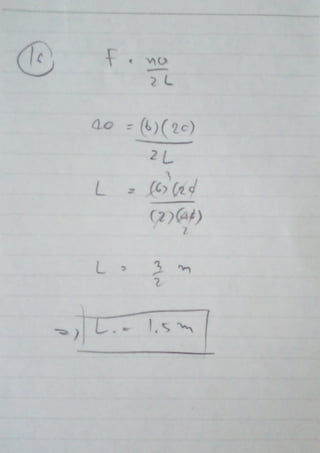 1c
F = nv
2L
40 = (6)(20)
2L
L = (6)(20)
(2)(40)
L = 3 m
2
=> L = 1.5 m